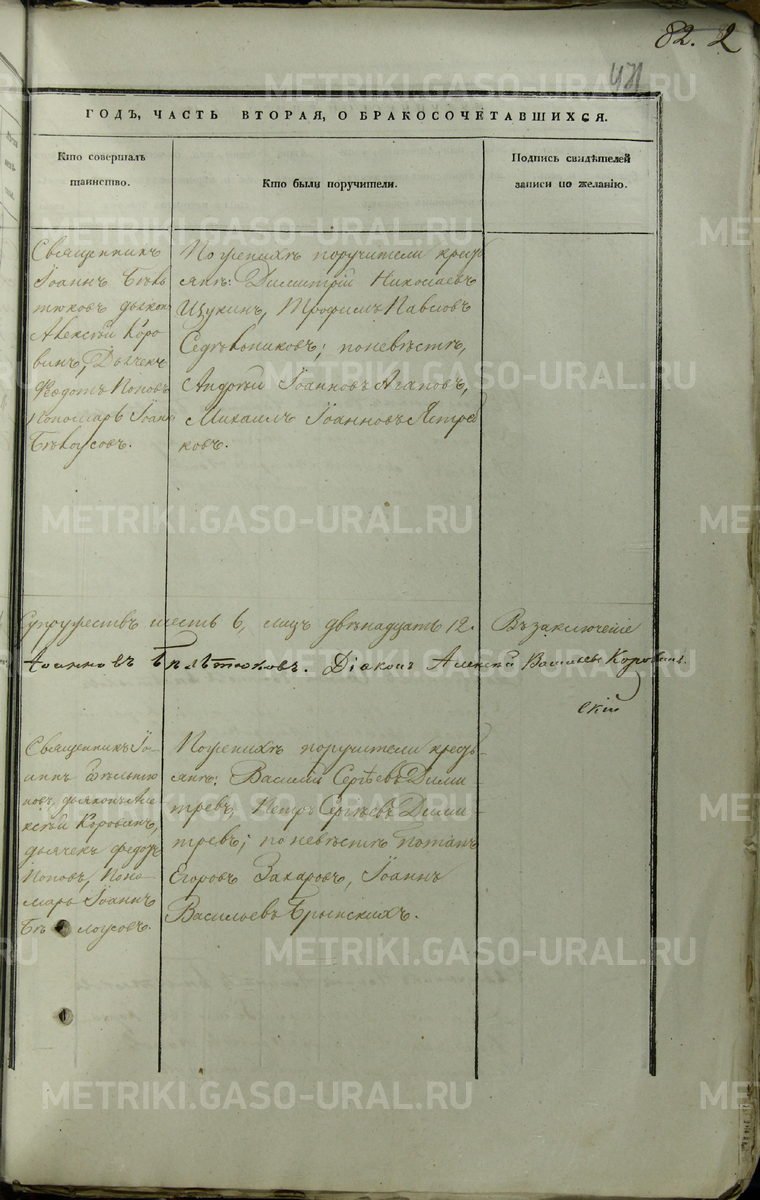 82. 2
471
ГОДЪ, ЧАСТЬ ВТОРАЯ, О БРАКОСОЧЕТАВШИХСЯ.
Кто совершалъ
таинство.
Кто были поручители.
Подпись свидѣтелей
записи по желанію.
Священникъ
Іоаннъ
дьякон
Алексѣй Коро
винъ, Дьячекъ
Федотъ Поповъ
Пономарь Іоанн
Бѣлоусовъ.
По женихѣ поручители крест
янѣ: Димитрій Николаевъ
Щукинъ, Трофимъ Павловъ
Седѣльниковъ; по невѣстѣ,
Андрей Іоанновъ Агаповъ,
Михаилъ Іоанновъ Ястреб
ковъ.
Супружествъ шесть 6, лицъ двѣнадцать 12. Въ заключеніе
Діаконъ Алексѣй Васильевъ
скій
Священникъ Іо-
аннъ
новъ, дьяконъ Але
ксѣй Коровинъ,
дьячекъ Федотъ
Поповъ, Поно-
марь Іоаннъ
Бѣлоусовъ.
По женихѣ поручители кресть-
янѣ: Василій Сергѣевъ Дими-
тревъ, Петръ Сергѣевъ Дими-
тревъ; по невѣстѣ Потапъ
Егоровъ Захаровъ, Іоаннъ
Васильевъ Брынскихъ.
METRIKI.GASO-URAL.RU